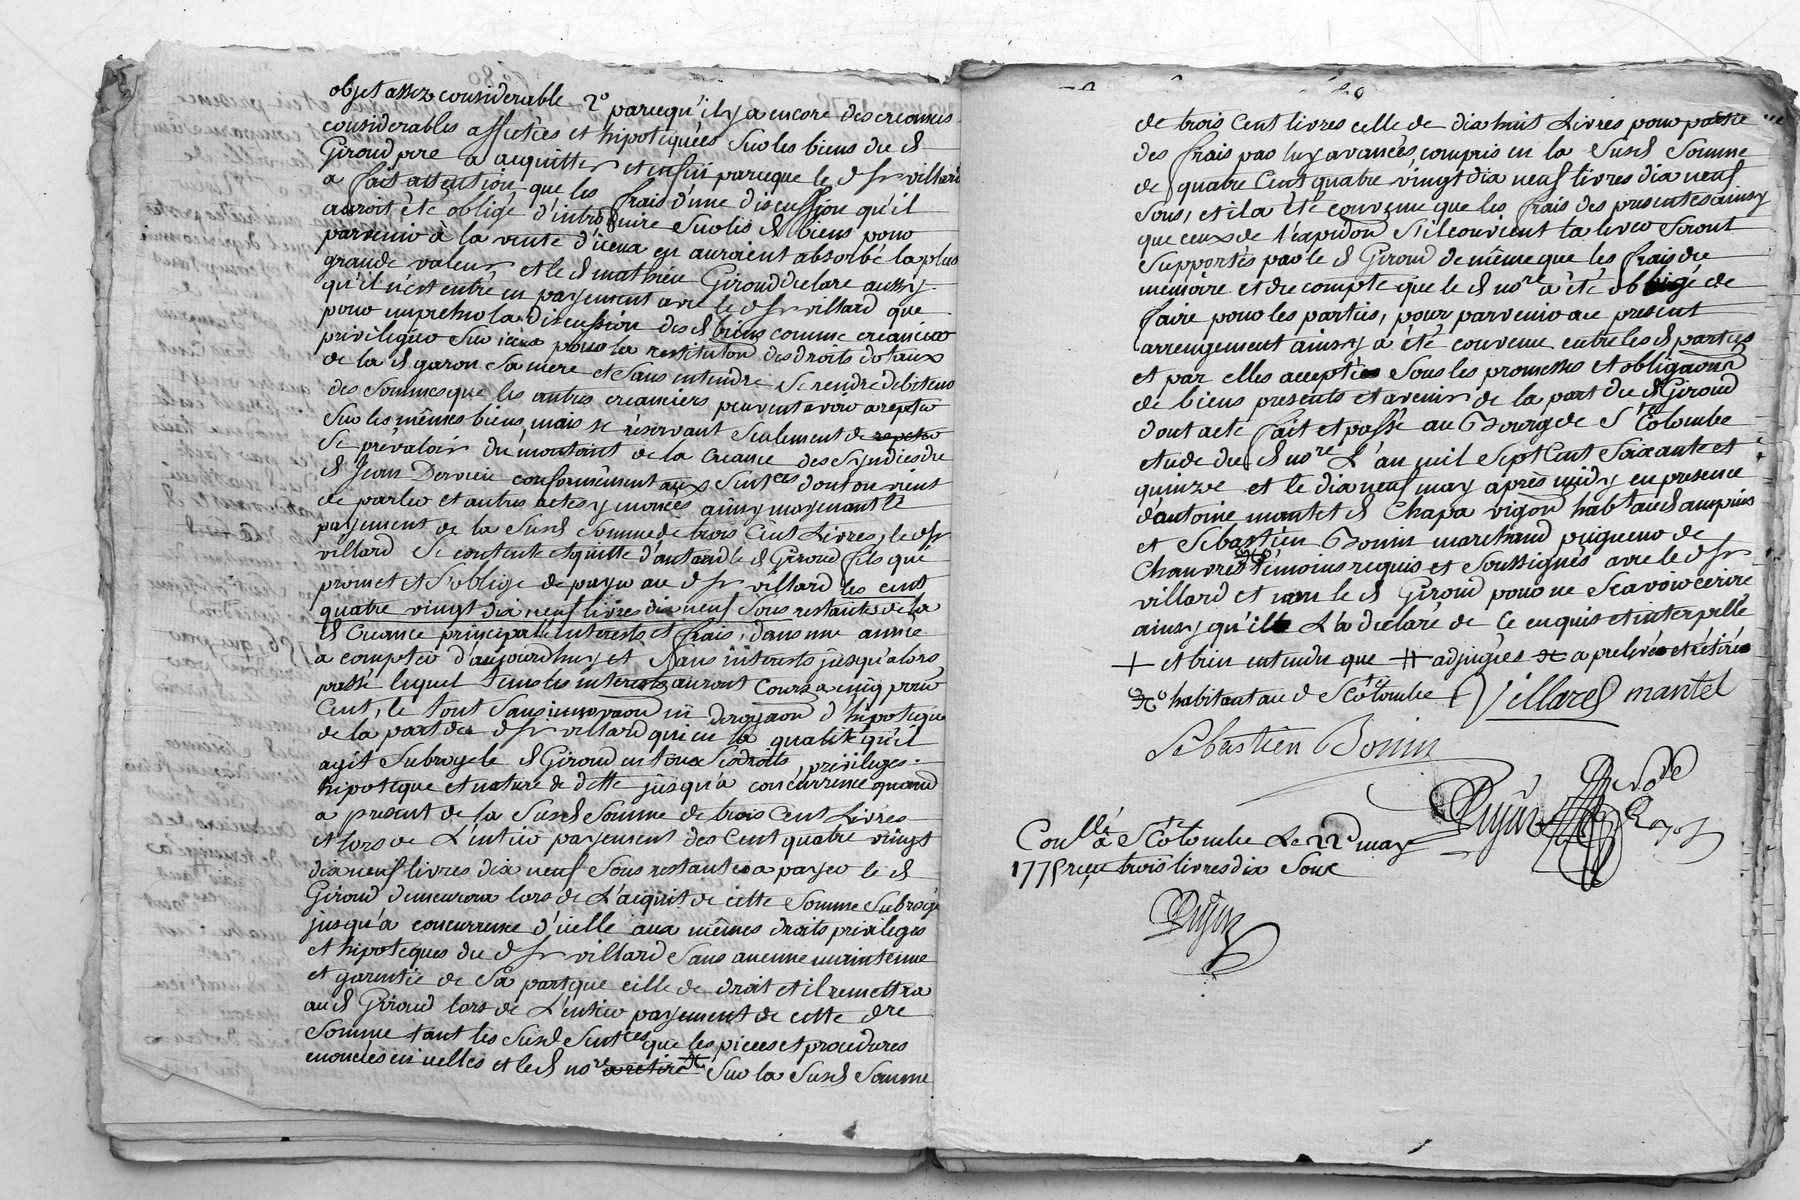 objet assez considerable 2o parcequ'il y a encore des creances
considerables affectées et hipotéquées Sur les biens du d
Giroud pere a acquitter et enfin parceque le d Sr villard
a fait attention que les frais d'une discussion qu'il
auroit été obligé d'introduire Sur les d biens pour
parvenir a la vente d'iceux en auroient absorbé la plus
grande valeur et le d mathieu Giroud declare aussy
qu'il n'est entré en payement avec le d Sr villard que
pour empecher la discussion des d biens comme creancier
privilegié Sur iceux pour la restitution des droits dotaux
de la d garon Sa mere et Sans entendre Se rendre debiteur
des Sommes que les autres creanciers peuvent avoir a repeter
Sur les mêmes biens, mais se réservant Seulement de repeter
Se prévaloir du montant de la creance des Syndics du
d Jean Dervieu conformément aux Sentces dont on vient
de parler et autres actes y énoncés ainsy moyenant le
payement de la Susd Somme de trois Cent Livres, le d Sr
villard Se contente et quitte d'autant le d Giroud fils qui
promet et S'oblige de payer au d Sr villard les cent
quatre vingt dix neuf livres dix neuf Sous restantes de la
d Creance principal interests et frais, dans une année
a compter d'aujourdhuy et Sans interests jusqu'alors
passé lequel tems les interests auront Cours a cinq pour
Cent, le tout Sans innovaon ni derogaon d'hipoteque
de la part du d Sr villard qui en la qualité qu'il
agit Subroge le d Giroud en tous Ses droits, privileges
hipoteque et nature de dette jusqu'a concurrence quand
a present de la Susd Somme de trois Cent Livres
et lors de L'entier payement des Cent quatre vingt
dix neuf livres dix neuf Sous restantes a payer le d
Giroud demeurera lors de L'acquit de cette Somme Subrogé
jusqu'a concurrence d'icelle aux mêmes droits privileges
et hipoteques du d Sr villard Sans aucune maintenue
et garantie de Sa part que celle de droit et il remettra
au d Giroud lors de L'entier payement de cette dre
Somme tant les Susd Sentces que les pieces et procedures
enoncées en icelles et le d nore a retiré Sur la Susd Somme
de trois Cent livres celle de dix huit Livres pour partie
des frais par luy avancés, compris en la Susd Somme
de quatre Cent quatre vingt dix neuf livres dix neuf
Sous, et il a été convenu que les frais des presentes ainsy
que ceux de l'expedon S'il convient la lever Seront
Supportés par le d Giroud de même que les frais du
mémoire et du compte que le d nore a été obligé de
faire pour les parties, pour parvenir au present
arrengement ainsy a été convenu entre les d parties
et par elles accepté Sous les promesses et obligaons
de biens presents et avenir de la part du d Giroud
dont acte fait et passé au Bourg de Ste Colombe
etude du d nore L'an mil Sept Cent Soixante et
quinze et le dix neuf may après midy en presence
d'antoine mantel d Chapa vigon habtt au d ampuis
et Sebastien Bonin marchand peigneur de
Chanvres témoins requis et Soussignés avec le d Sr
villard et non le d Giroud pour ne Scavoir écrire
ainsy qu'il L'a declaré de Ce enquis et interpellé
+ et bien entendu que # adjugées a prelevé et retiré
habitant au d Ste Colombe + Villard mantel
Sebastien Bonin
Dujon
Conllé a Ste Colombe Le 22d may
1775 reçu trois livres dix Sous
Dujon